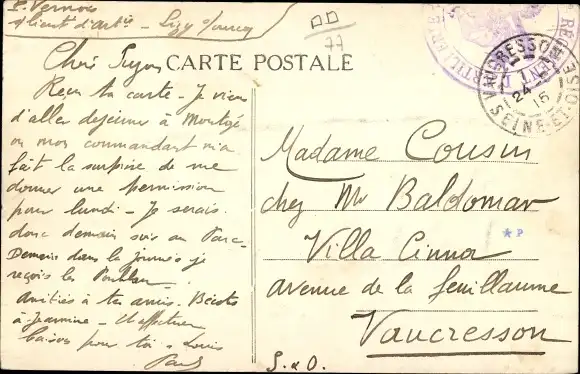 P. Vernois
s/lieut d'artie - Lizy s/ourcq
77
CARTE POSTALE
VAUCRESSON
24
15
SEINE-ET-OISE
Reçu ta carte - Je viens
d'aller déjeuner à
où mon commandant m'a
fait la surprise de me
donner une permission
pour lundi - Je serais
donc demain soir au Parc -
Demain dans la journée je
reçois les
Amitiés à tes amis. Bécots
à Jeannine - et affectueux
baisers pour toi - Louis
Paul
Madame Cousin
chez Mr Baldomar
Villa Cinna
★P
avenue de la feuillaume
Vaucresson
S. & O.